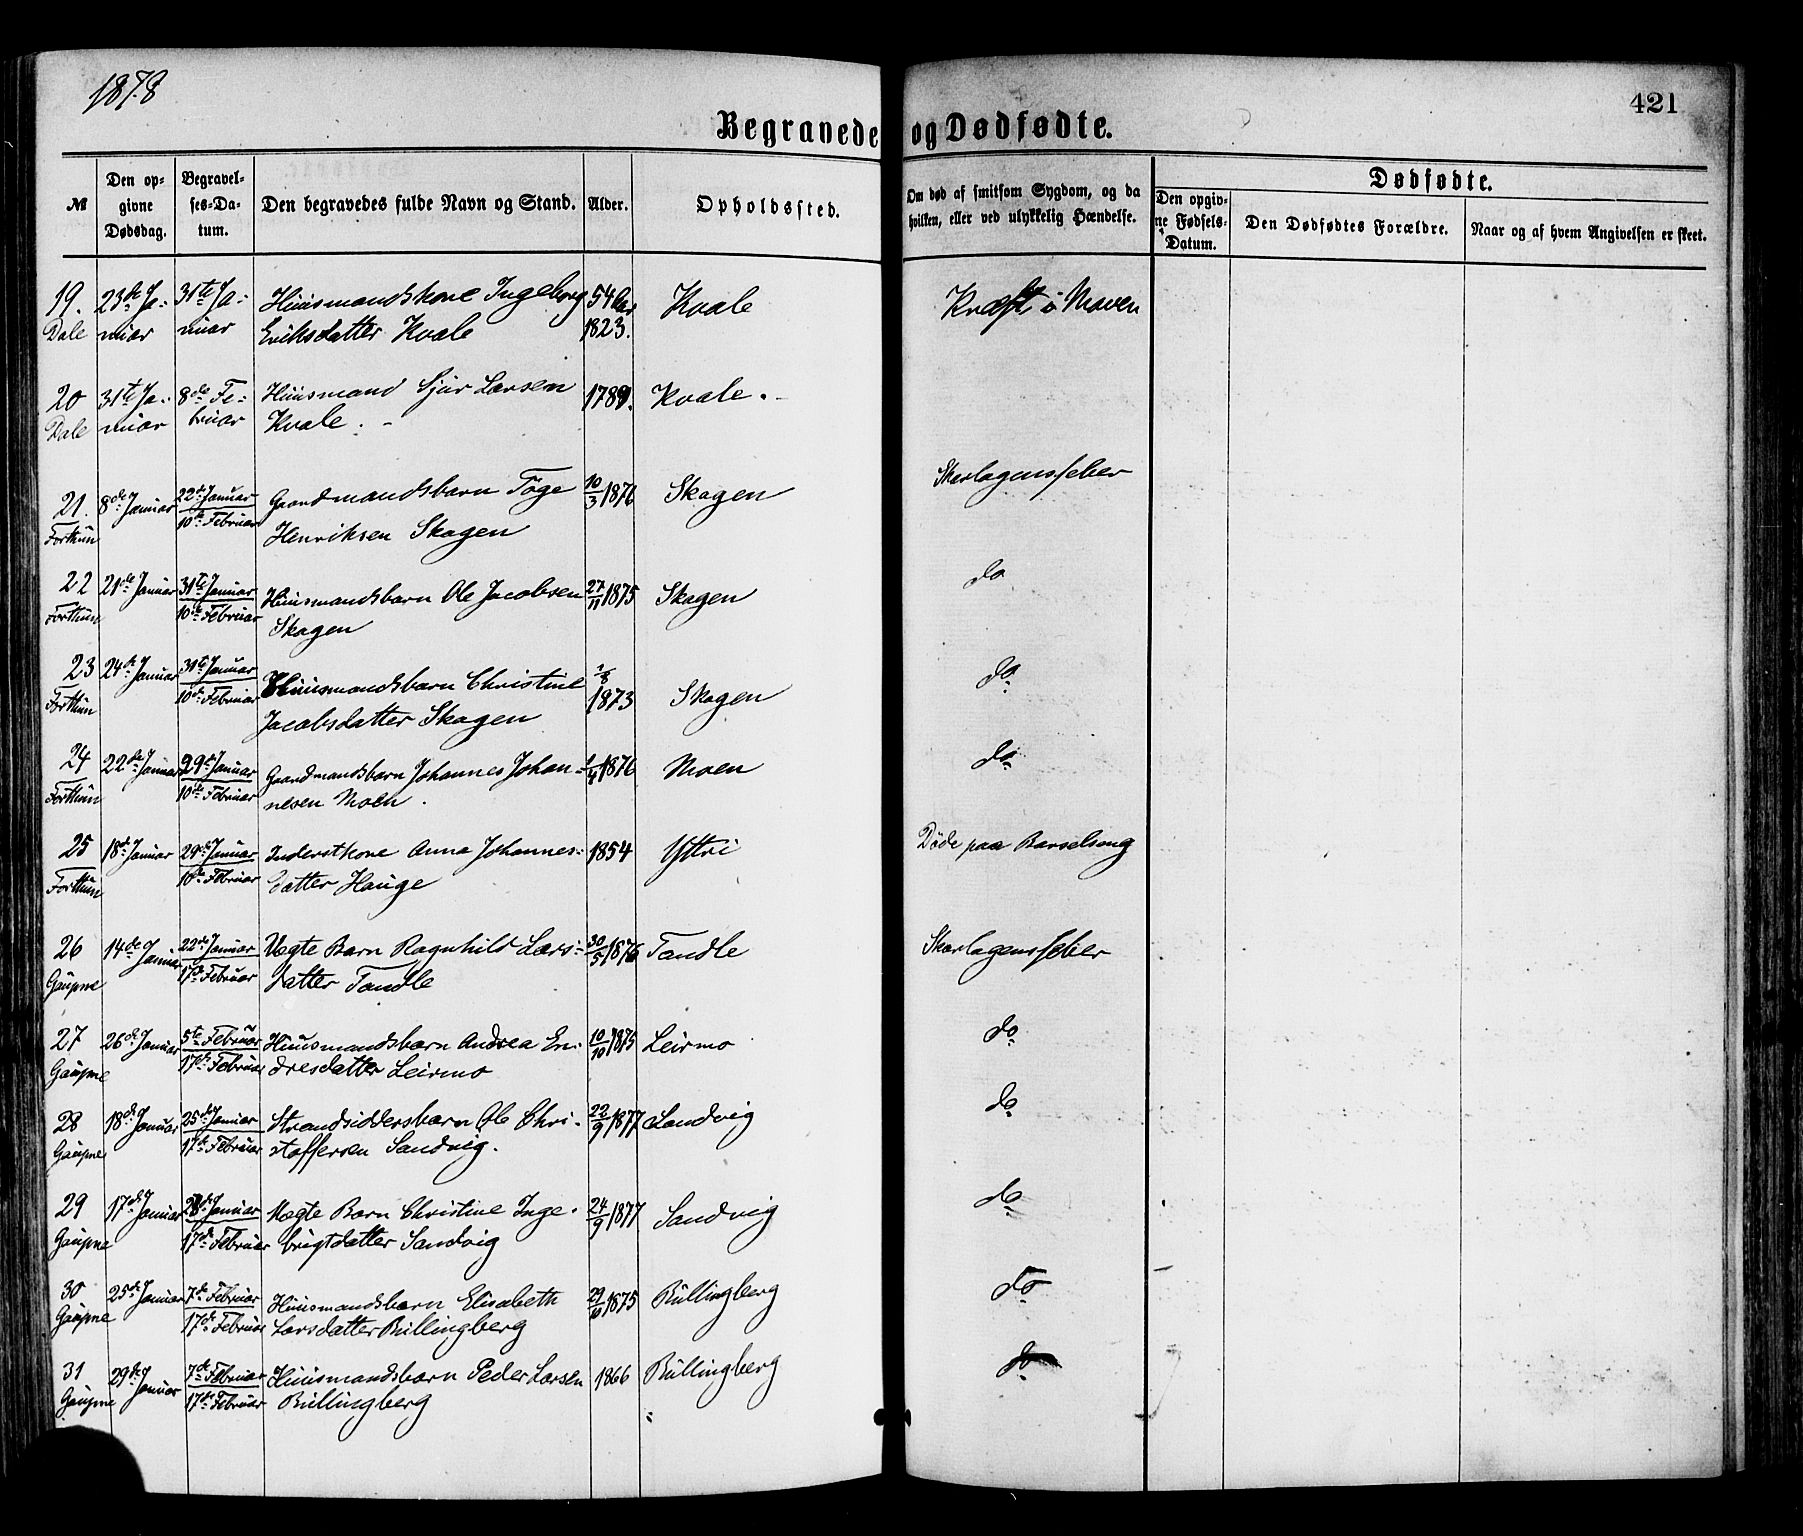 1878
421
Begravede og Dødfødte.
№ | Den opgivne Dødsdag. | Begravelses-Datum. | Den begravedes fulde Navn og Stand. | Alder. | Opholdssted. | Om død af smitsom Sygdom, og da hvilken, eller ved ulykkelig Hændelse. | Dødfødte.
Den opgivne Fødsels-Datum. | Den Dødfødtes Forældre. | Naar og af hvem Angivelsen er skeet.
19. 23de Ja- 31te Ja- Huusmandskone Ingeborg 54 Aar Kvale Kræft i Maven
Dale nuar nuar Eriksdatter Kvale 1823.
20 31te Ja- 8de Fe- Huusmand Sjur Larsen 1789. Kvale.
Dale nuar bruar Kvale.
21. 8de Januar 22de Januar Gaardmandsbarn Töge 10/3 1876 Skagen Skarlagensfeber
Forthun 10de Februar Henriksen Skagen
22 21de Januar 31te Januar Huusmandsbarn Ole Jacobsen 27/11 1875 Skagen do
Forthun 10de Februar Skagen
23 24de Januar 31te Januar Huusmandsbarn Christine
Forthun 10de Februar Jacobsdatter Skagen 1873 Skagen do
24 22de Januar 29de Januar Gaardmandsbarn Johannes Johan- 1/4 1876 Moen do
Forthun 10de Februar nesen Moen.
25 18de Januar 29de Januar Inderstkone Anna Johannes- 1854 Yttri Döde paa Barselseng
Forthun 10de Februar datter Hauge
26 14de Januar 22de Januar Uægte Barn Ragnhild Lars- 30/5 1876 Tandle Skarlagensfeber
Gaupne 17de Februar datter Tandle
27 26de Januar 5te Februar Huusmandsbarn Andrea En- 10/10 1875 Leirmo do
Gaupne 17de Februar dresdatter Leirmo
28 18de Januar 25de Januar Strandsiddersbarn Ole Chri- 22/9 1877 Sandvig do
Gaupne 17de Februar stoffersen Sandvig.
29 17de Januar 28de Januar Uægte Barn Christine Inge- 24/9 1877 Sandvig do
Gaupne 17de Februar brigtdatter Sandvig
30 25de Januar 7de Februar Huusmandsbarn Elisabeth 29/10 1875 Bullingberg do
Gaupne 17de Februar Larsdatter Bullingberg
31 29de Januar 7de Februar Huusmandsbarn Peder Larsen 1866 Bullingberg do
Gaupne 17de Februar Bullingberg